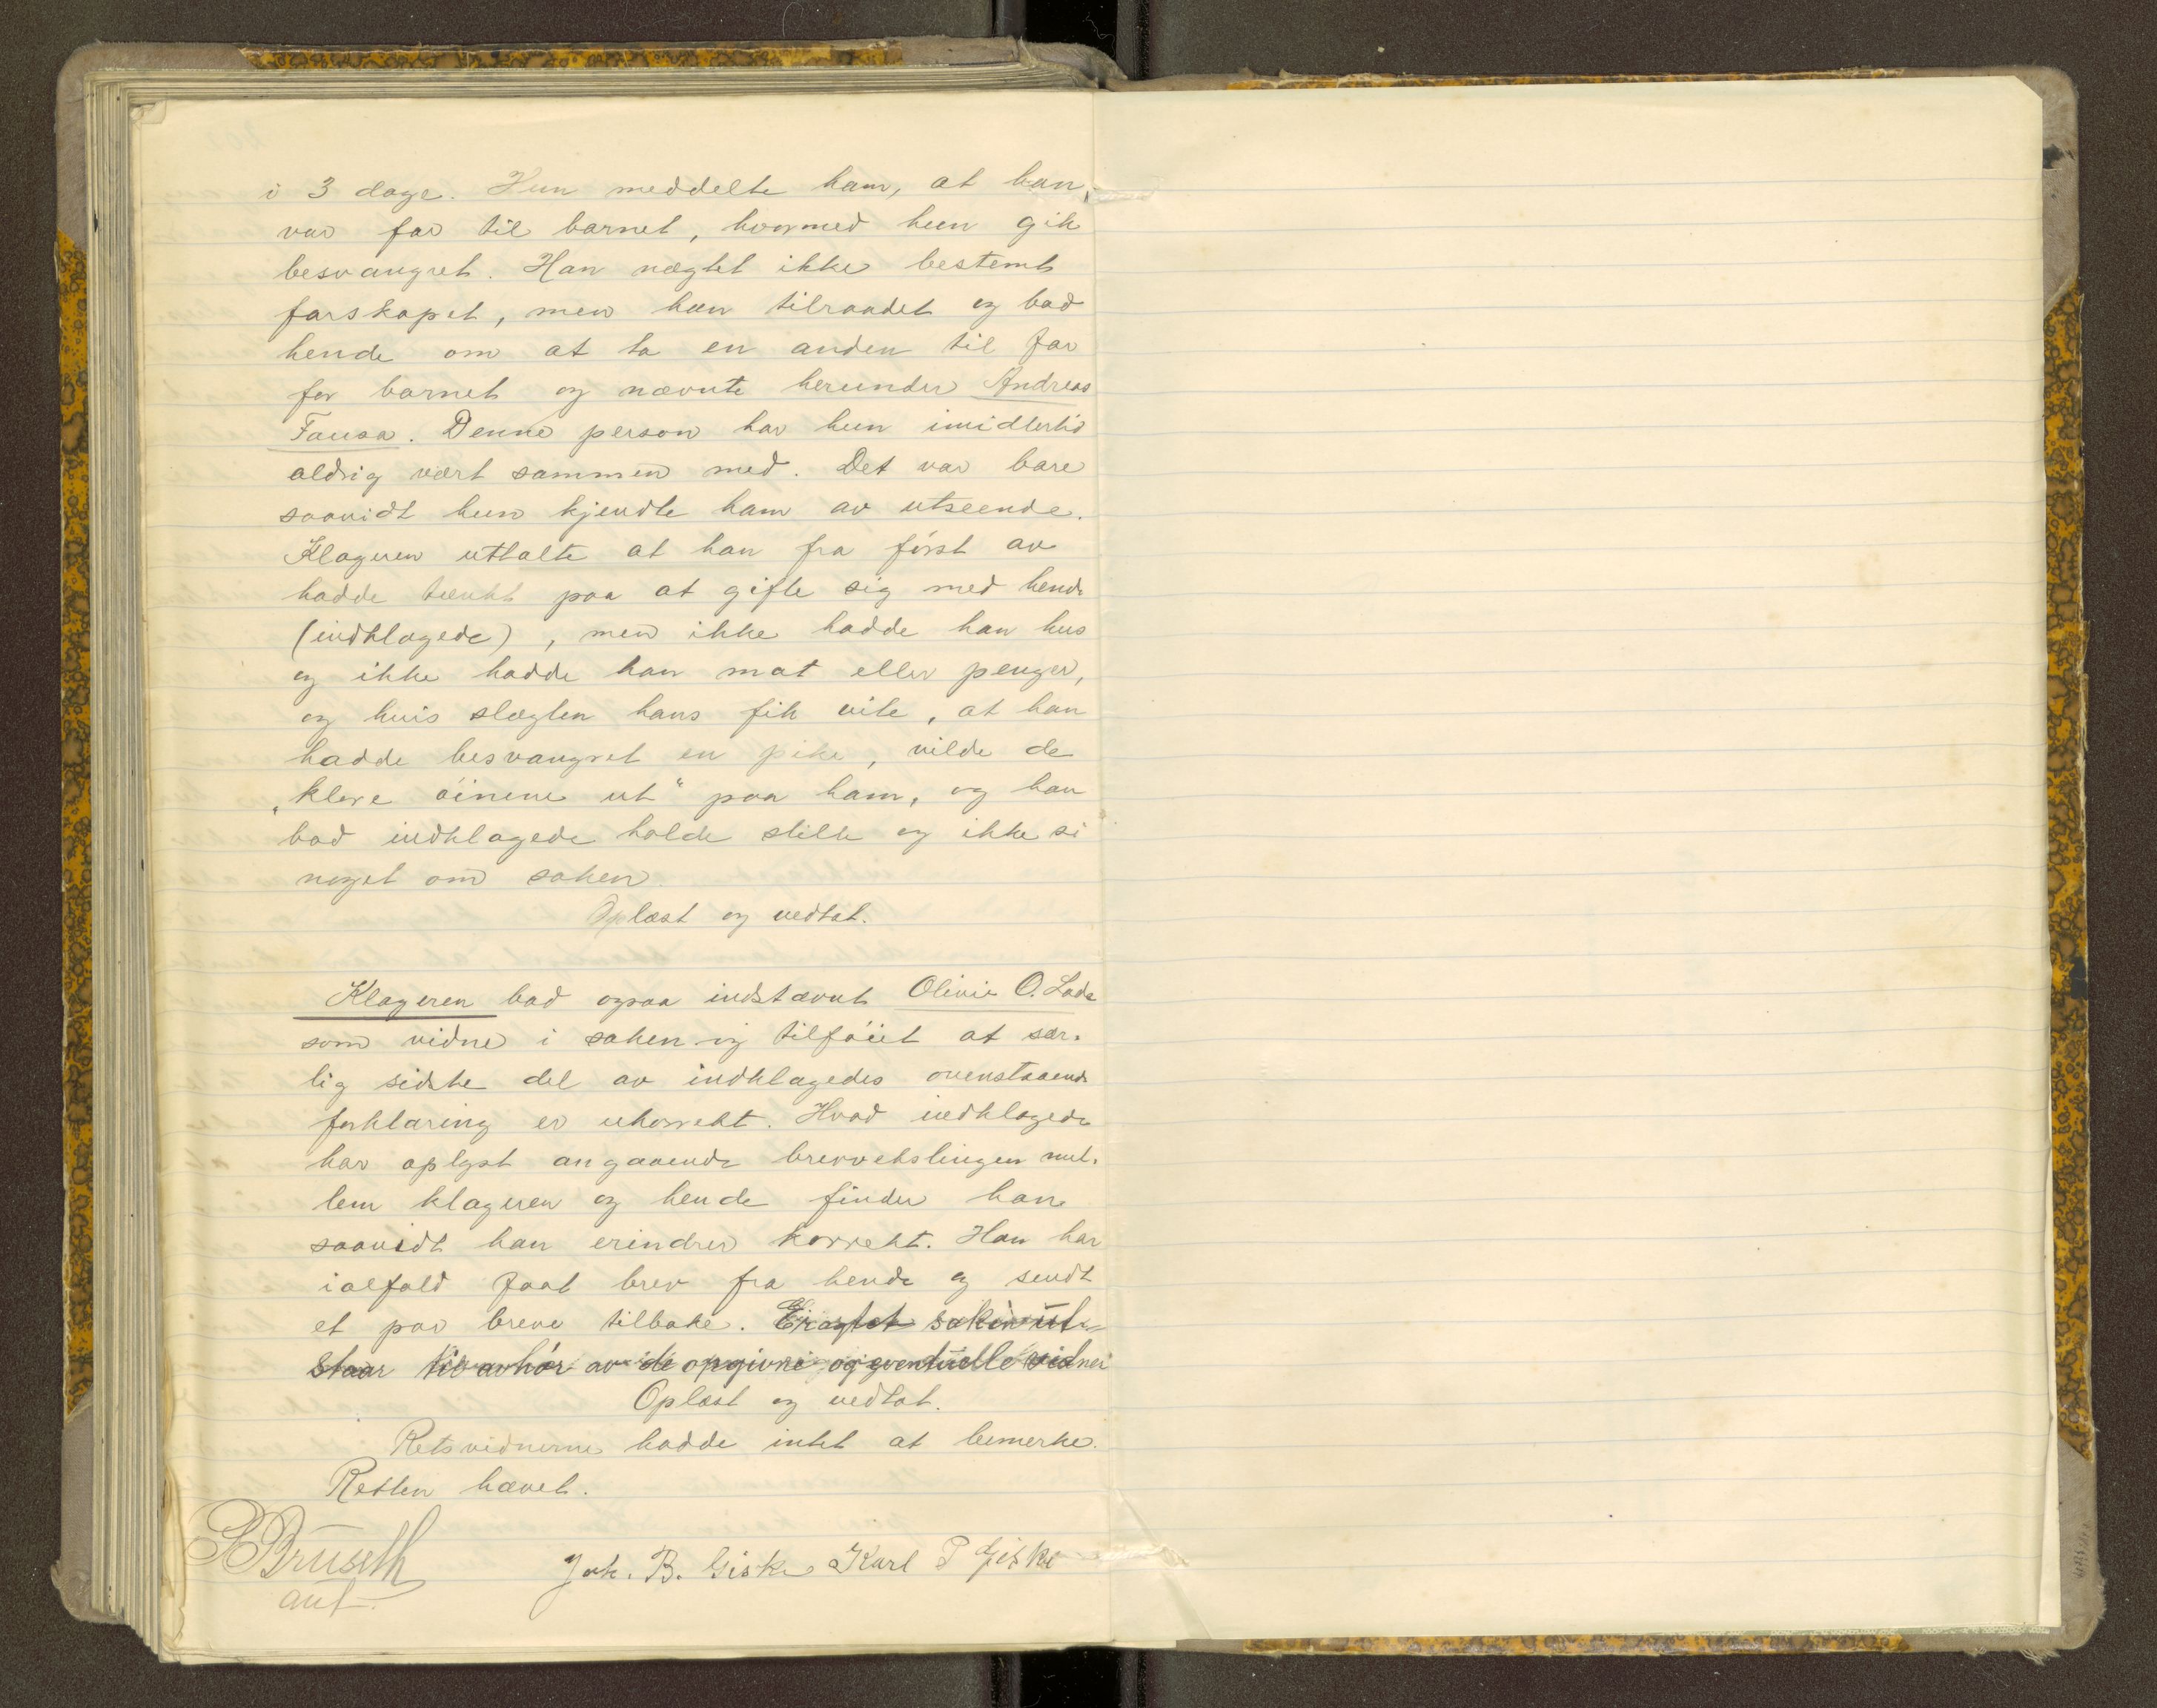 i 3 dage. Hun meddelte ham, at han
var far til barnet, hvormed hun gik
besvangret. Han nægtet ikke bestemt
farskapet, men han tilraadet og bad
hende om at ta en anden til far
for barnet og nævnte herunder Andreas
Fausa. Denne person har hun imidlertid
aldrig vært sammen med. Det var bare
saavidt hun kjendte ham av utseende.
Klageren uttalte at han fra først av
hadde tænkt paa at gifte sig med hende
(indklagede), men ikke hadde han hus
og ikke hadde han mat eller penger,
og hvis slægten hans fik vite, at han
hadde besvangret en pike, vilde de
„klore øinene ut“ paa ham, og han
bad indklagede holde stille og ikke si
noget om saken.
Oplæst og vedtat.
Klageren bad ogsaa indstævnt Olivie O. Lade
som vidne i saken og tilføiet at sær-
lig sidste del av indklagedes ovenstaaende
forklaring er ukorrekt. Hvad indklagede
har oplyst angaaende brevvekslingen mel-
lem klageren og hende finder han
saavidt han erindrer korrekt. Han har
ialfald faat brev fra hende og sendt
et par breve tilbake. saken ut-
staar til avhør av de opgivne og eventuelle vidner
Oplæst og vedtat.
Retsvidnerne hadde intet at bemerke.
Retten hævet.
Bruseth
Joh. B. Giske Karl P Giske
aut.